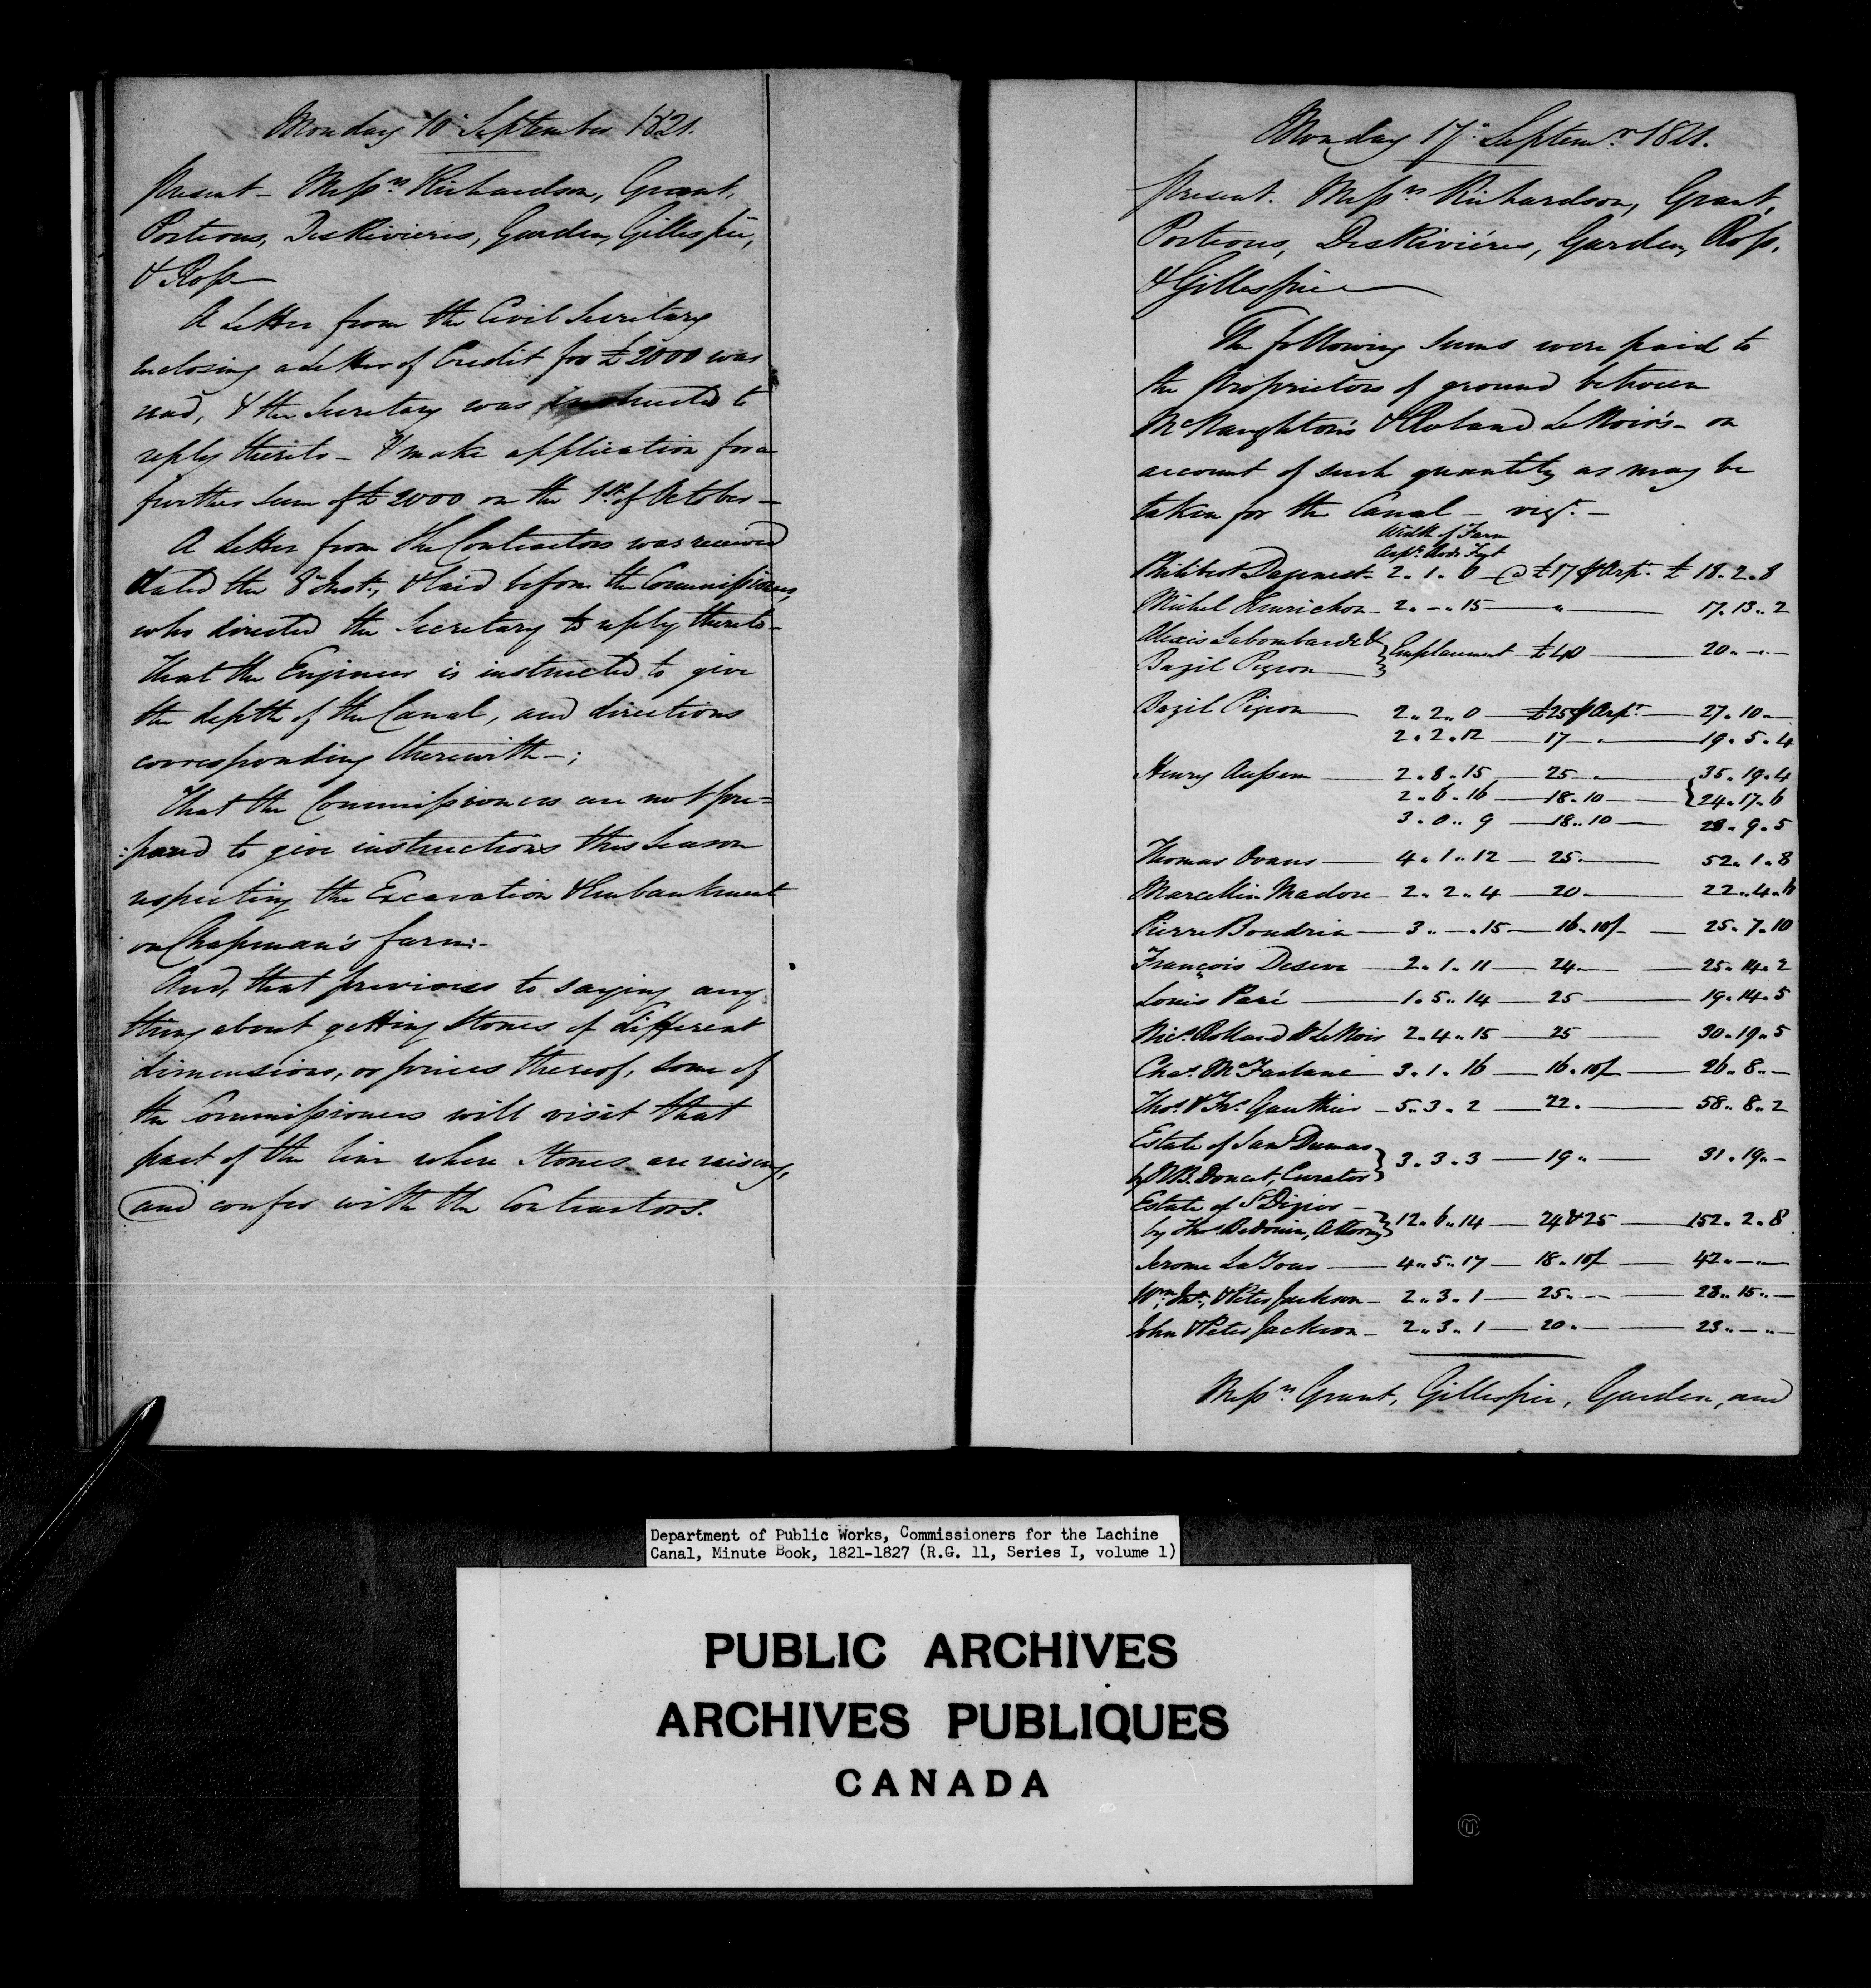 Monday 10th September 1821.
Present - Messrs Richardson, Grant,
Porteous, DesRivieres, Garden, Gillespie,
& Ross
A Letter from the Civil Secretary
enclosing a Letter of Credit for £2000 was
read, & the Secretary was instructed to
reply thereto - & make application for a
further sum of £2000 on the 1st of October -
A Letter from the Contractors was received
dated the 8th Inst., & laid before the Commissioners,
who directed the Secretary to reply thereto -
That the Engineer is instructed to give
the depth of the Canal, and directions
corresponding therewith - ;
That the Commissioners are not pre=
:pared to give instructions this Season
respecting the Excavation & Embankment
on Chapman's farm: -
And, that previous to saying any
thing about getting Stones of different
dimensions, or prices thereof, some of
the Commissioners will visit that
part of the line where Stones are raising,
and confer with the Contractors.
Monday 17th Septemr 1821.
Present. Messrs Richardson, Grant,
Porteous, DesRiviéres, Garden, Ross,
& Gillespie
The following sums were paid to
the Proprietors of ground between
McNaughton's & Roland LeNoir's - on
account of such quantity as may be
taken for the Canal - vizt. -
Width of Farm
Arpts Rods Feet
Philibert 2. 1. 6 - @ £17 P Arpt. £ 18. 2. 8
Michel Henrichon - 2. - . 15 - " - 17. 13. 2
Alexis Labombarde & } Emplacement £40 - 20 " - " -
Bazil Pigeon }
Bazil Pigeon - 2 " 2 " 0 - £25 P Arpt. - 27. 10 -
2. 2. 12 - 17 - . - 19. 5. 4
Henry - 2. 8. 15 - 25 " - { 35. 19. 4
2. 6. 16 - 18. 10 - { 24. 17. 6
3. 0 " 9 - 18. 10 - 28. 9. 5
Thomas Evans - 4. 1. 12 - 25. - 52. 1. 8
Marcellin Madore - 2. 2. 4 - 20 - 22. 4. 6
Pierre Boudria - 3. - . 15 - 16. 10/ - 25. 7. 10
François Deseve - 2. 1. 11 - 24 - 25. 14. 2
Louis Paré - 1. 5. 14 - 25 - 19. 14. 5
Nics. Rolland & LeNoir 2. 4. 15 - 25 - 30. 19. 5
Chas. McFarlane - 3. 1. 16 - 16. 10/ - 26. 8. -
Thos. & Frs. Gauthier - 5. 3. 2 - 22. - 58. 8. 2
Estate of Dumas }
by NB. Doucet, Curator } 3. 3. 3 - 19 " - 31. 19. -
Estate of St Dizier -
by Thos. Bedouin, Attorney } 12. 6. 14 - 24 & 25 - 152. 2. 8
Jerome LaTour - 4. 5. 17 - 18. 10/ - 42. - . -
Wm., & Peter Jackson - 2. 3. 1 - 25. - - 28. 15. -
John & Peter Jackson - 2. 3. 1 - 20. - 23. - . -
Messrs Grant, Gillespie, Garden, and
Department of Public Works, Commissioners for the Lachine
Canal, Minute Book, 1821-1827 (R.G. 11, Series I, volume 1)
PUBLIC ARCHIVES
ARCHIVES PUBLIQUES
CANADA